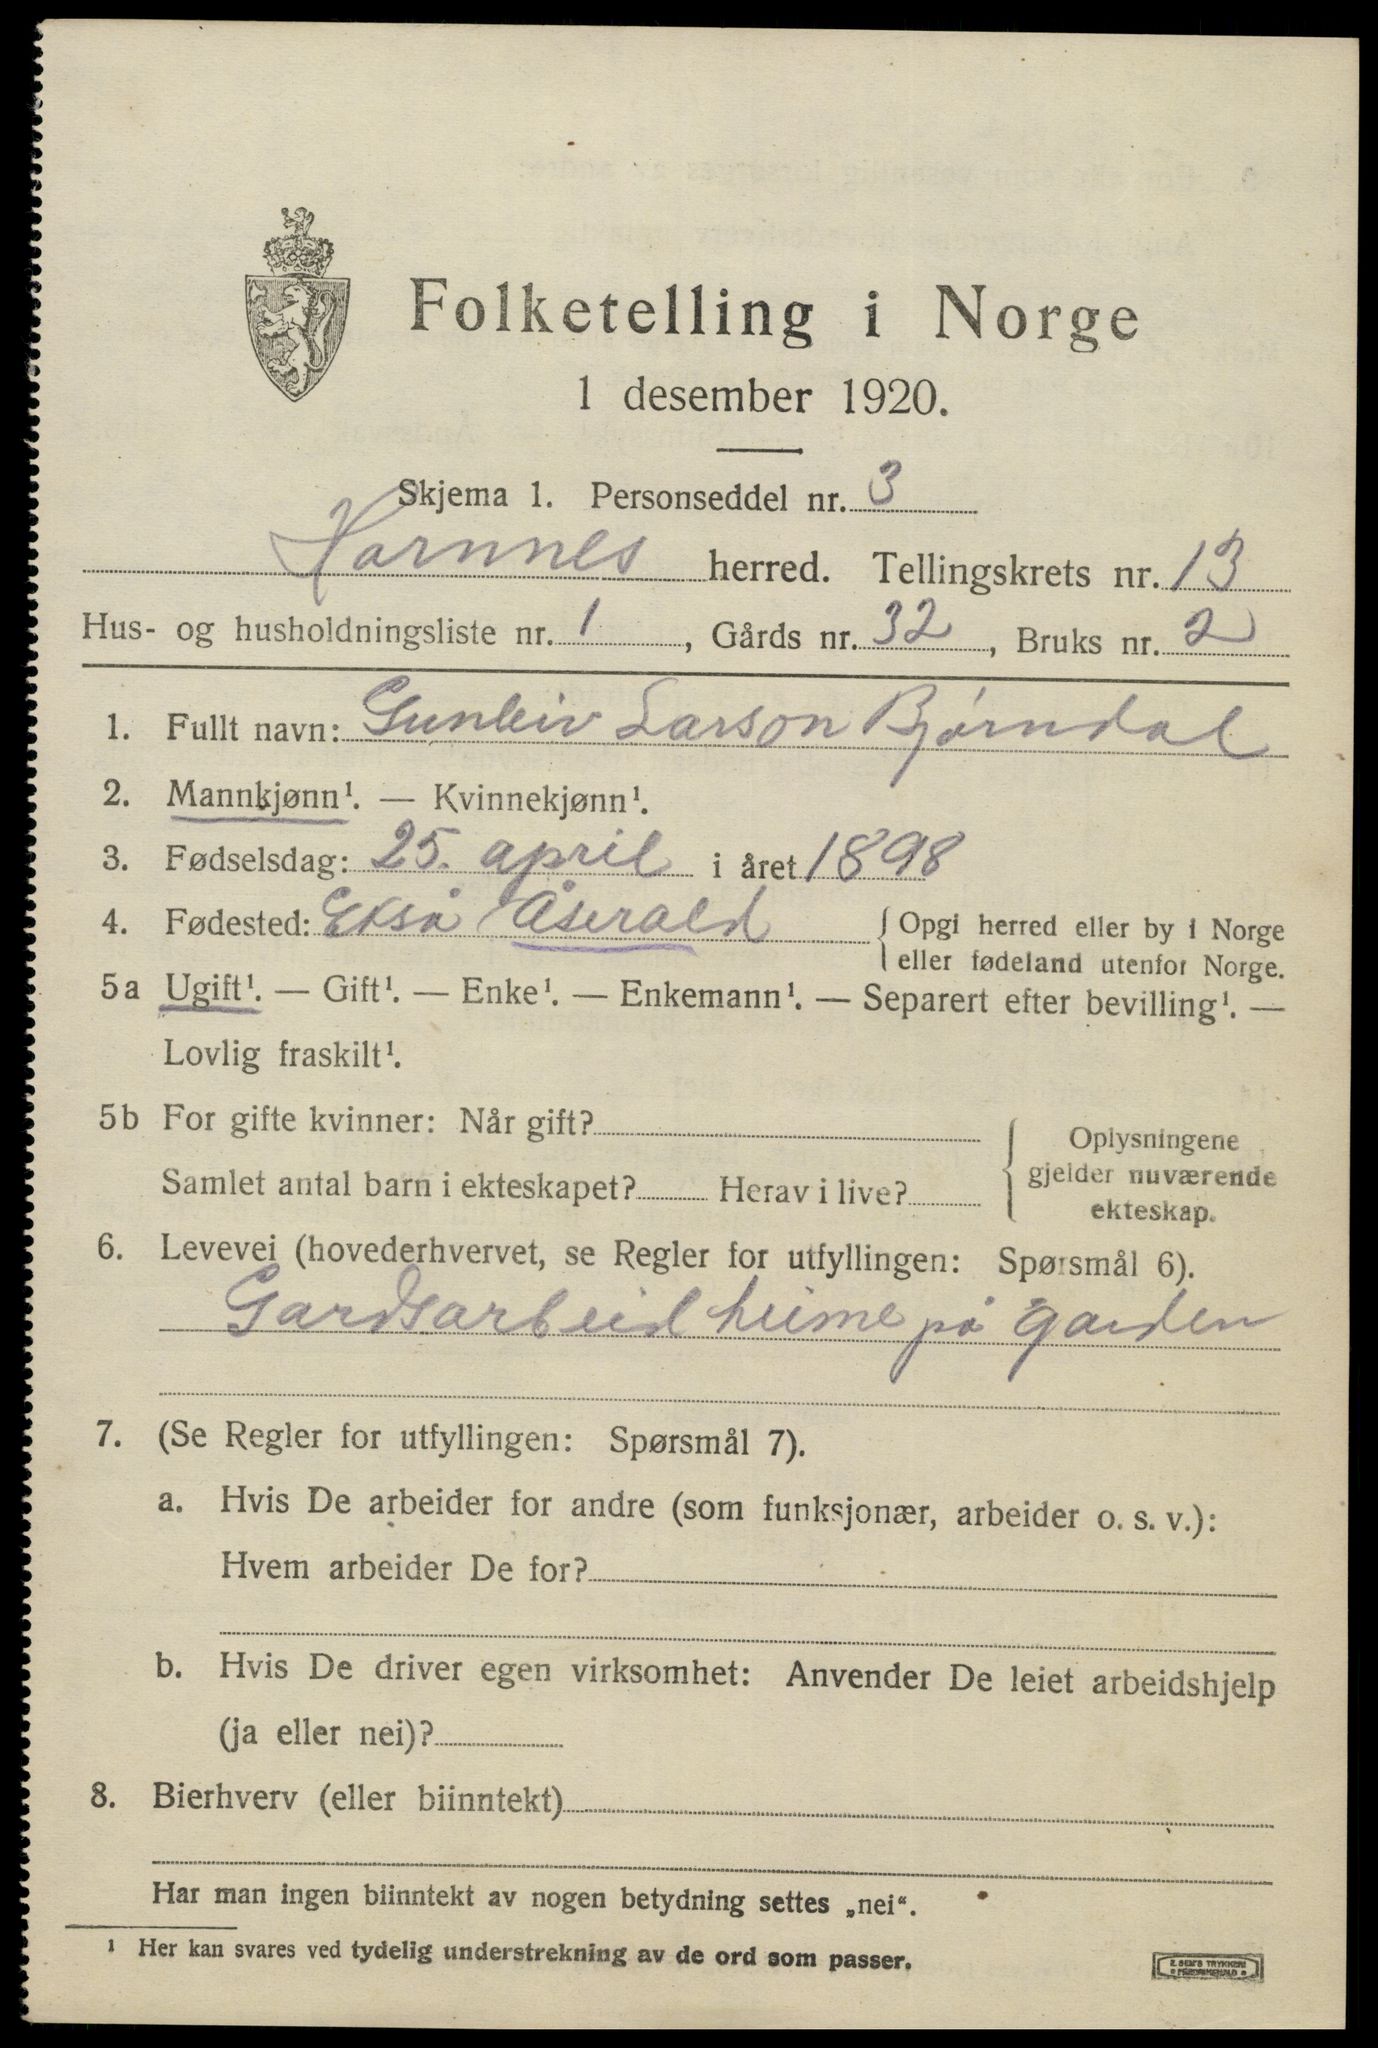 Folketelling i Norge
1 desember 1920.
Skjema 1. Personseddel nr. 3
Hornnes herred. Tellingskrets nr. 13
Hus- og husholdningsliste nr. 1, Gårds nr. 32, Bruks nr. 2
1. Fullt navn: Gunleiv Larson Bjørndal
2. Mannkjønn¹. — Kvinnekjønn¹.
3. Fødselsdag: 25. april i året 1898
4. Fødested: Ekså Åserald { Opgi herred eller by i Norge
eller fødeland utenfor Norge.
5a Ugift¹. — Gift¹. — Enke¹. — Enkemann¹. — Separert efter bevilling¹. —
Lovlig fraskilt¹.
5b For gifte kvinner: Når gift?
Samlet antal barn i ekteskapet? Herav i live?
{ Oplysningene
gjelder nuværende
ekteskap.
6. Levevei (hovederhvervet, se Regler for utfyllingen: Spørsmål 6).
Gardsarbeid heime på garden
7. (Se Regler for utfyllingen: Spørsmål 7).
a. Hvis De arbeider for andre (som funksjonær, arbeider o. s. v.):
Hvem arbeider De for?
b. Hvis De driver egen virksomhet: Anvender De leiet arbeidshjelp
(ja eller nei)?
8. Bierhverv (eller biinntekt)
Har man ingen biinntekt av nogen betydning settes „nei“.
¹ Her kan svares ved tydelig understrekning av de ord som passer.